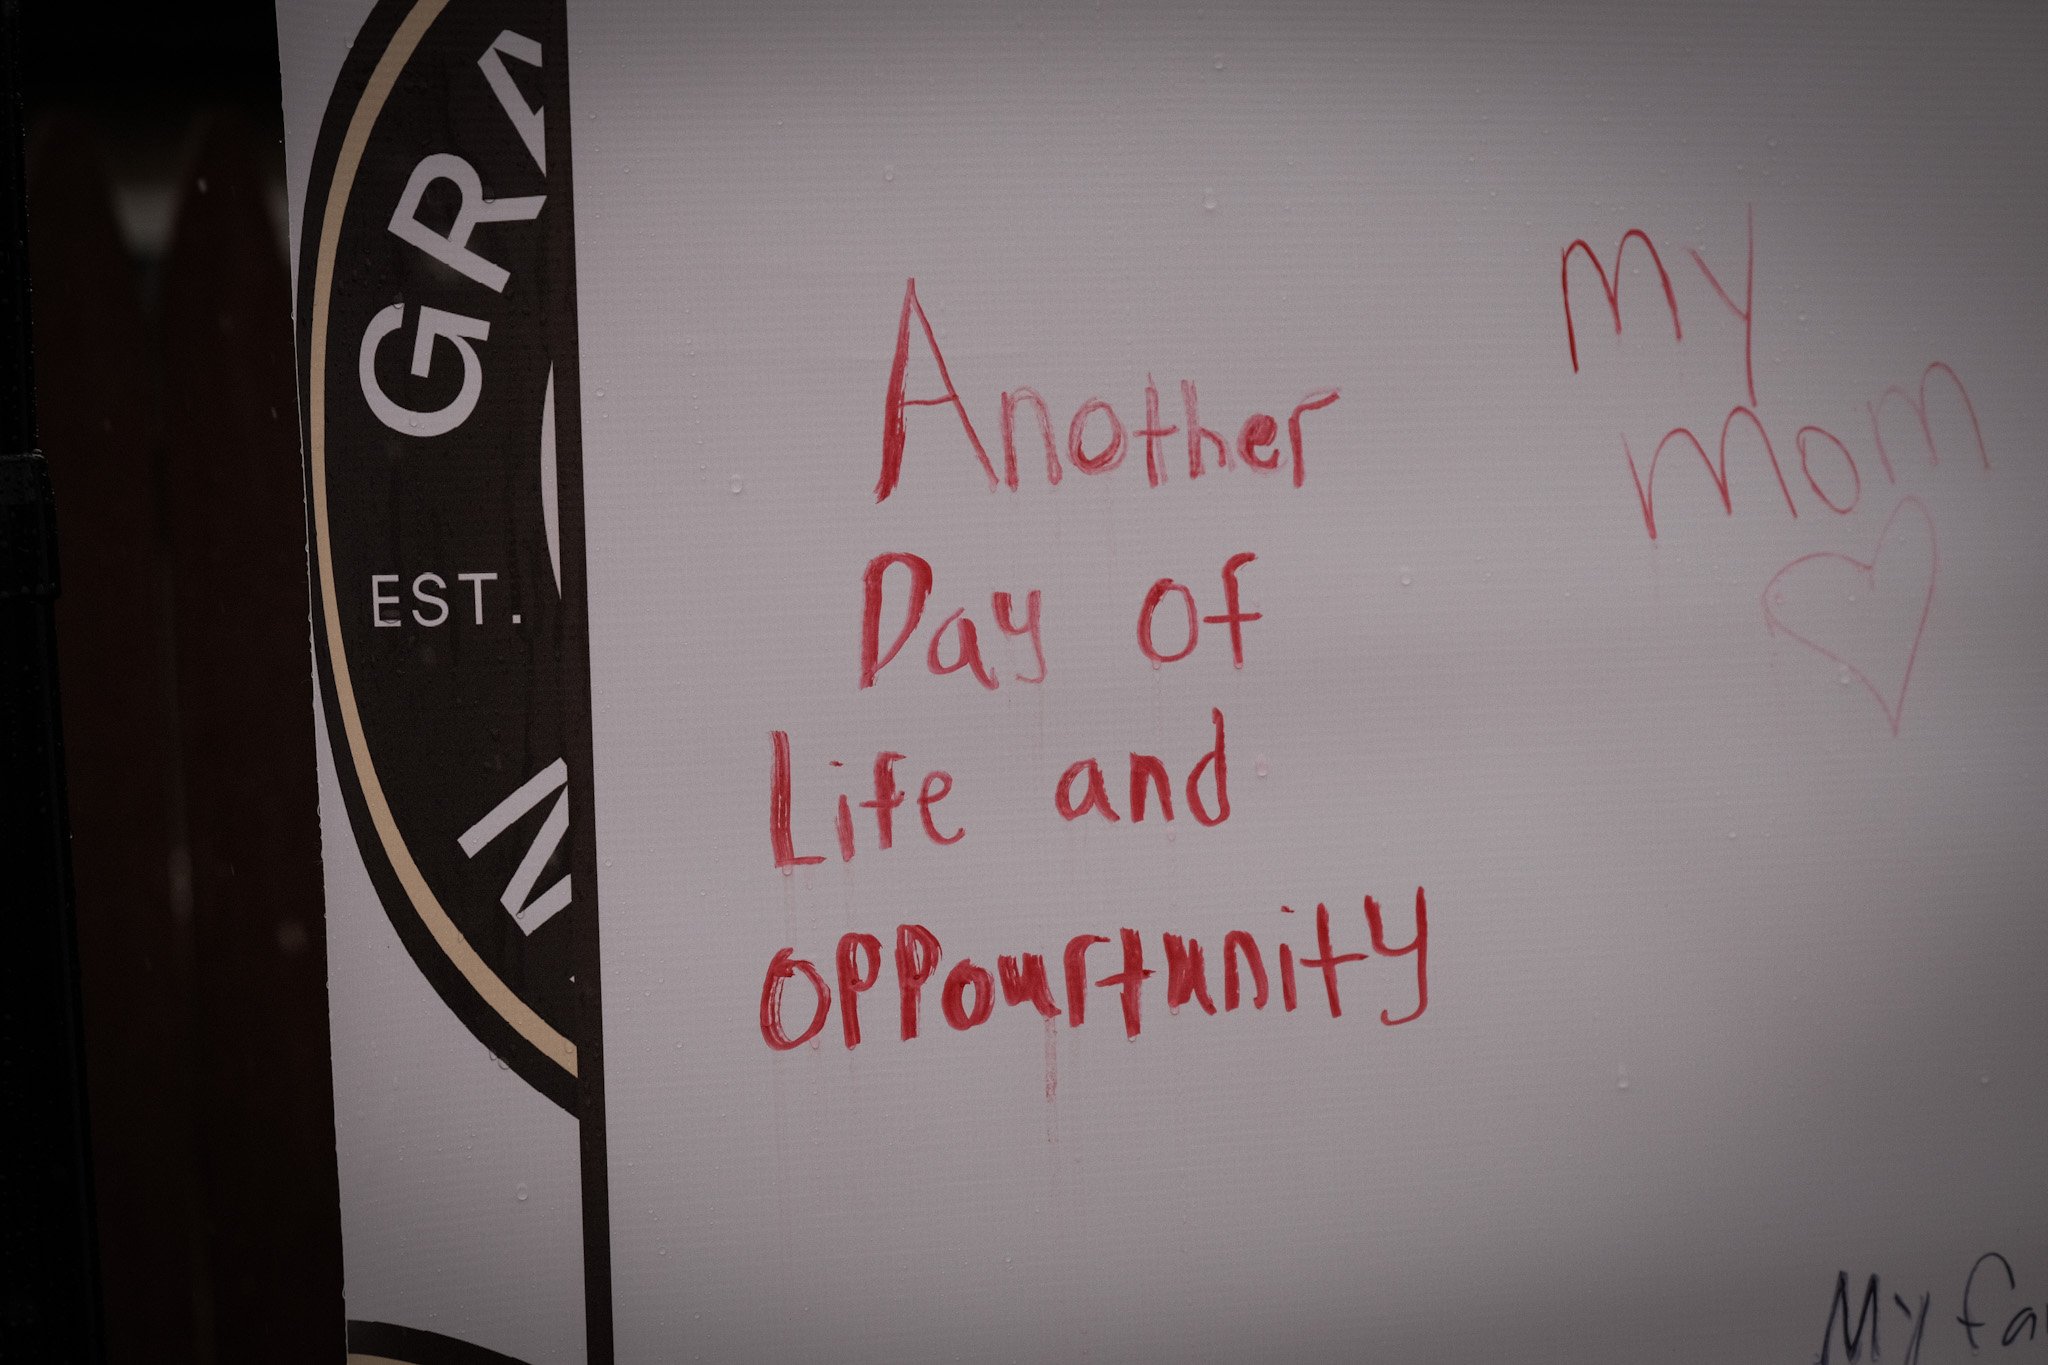 GRA
EST.
N
Another
Day of
Life and
oppourtunity
My
mom
My